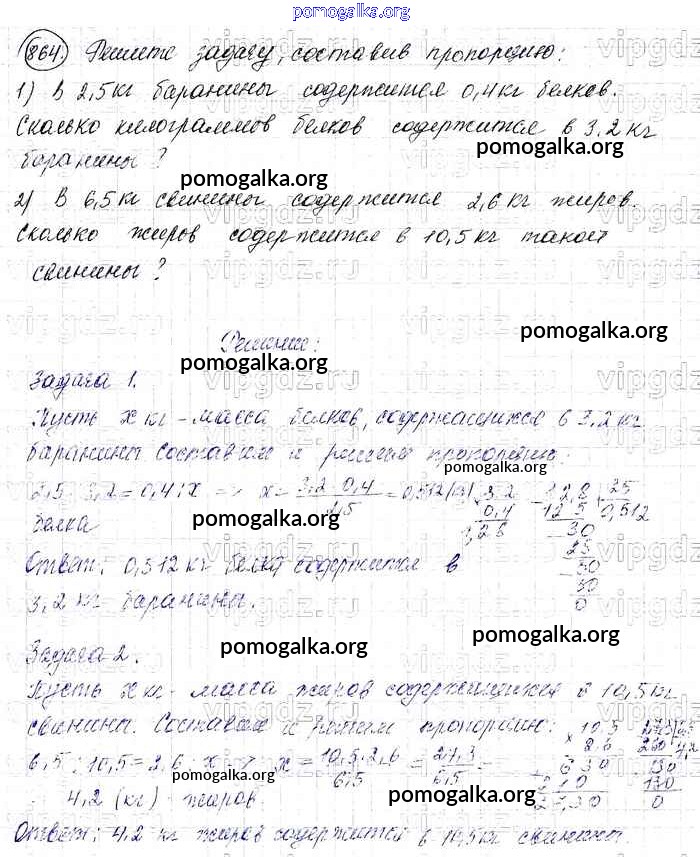 pomogalka.org
864 Решите задачу, составив пропорцию:
1) В 2,5 кг баранины содержится 0,4 кг белков.
Сколько килограммов белков содержится в 3,2 кг
баранины?
pomogalka.org
pomogalka.org
2) В 6,5 кг свинины содержится 2,6 кг жиров.
Сколько жиров содержится в 10,5 кг такой
свинины?
vipgdz.ru
Решение:
pomogalka.org
pomogalka.org
Задача 1.
Пусть x кг - масса белков, содержащихся в 3,2 кг
баранины. Составим и решим пропорцию:
pomogalka.org
2,5 : 3,2 = 0,4 : x => x = 3,2 · 0,4 / 2,5 = 0,512 (кг)
белка
pomogalka.org
Ответ: 0,512 кг белка содержится в
3,2 кг баранины.
pomogalka.org
pomogalka.org
Задача 2.
Пусть x кг - масса жиров содержащихся в 10,5 кг
свинины. Составим и решим пропорцию:
6,5 : 10,5 = 2,6 : x => x = 10,5 · 2,6 / 6,5 = 27,3 / 6,5
pomogalka.org
= 4,2 (кг) - жиров.
pomogalka.org
Ответ: 4,2 кг жиров содержится в 10,5 кг свинины.